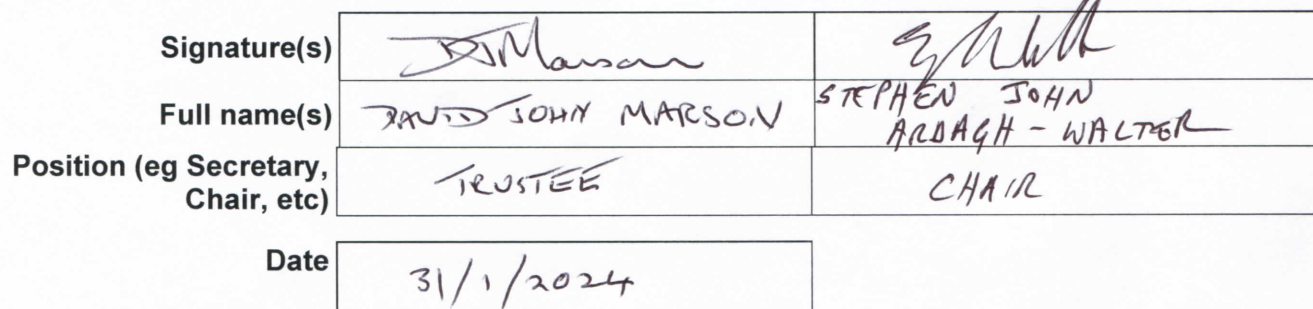 Signature(s) DJMarson
Full name(s) DAVID JOHN MARSON STEPHEN JOHN
ARDAGH - WALTER
Position (eg Secretary, TRUSTEE CHAIR
Chair, etc)
Date 31/1/2024